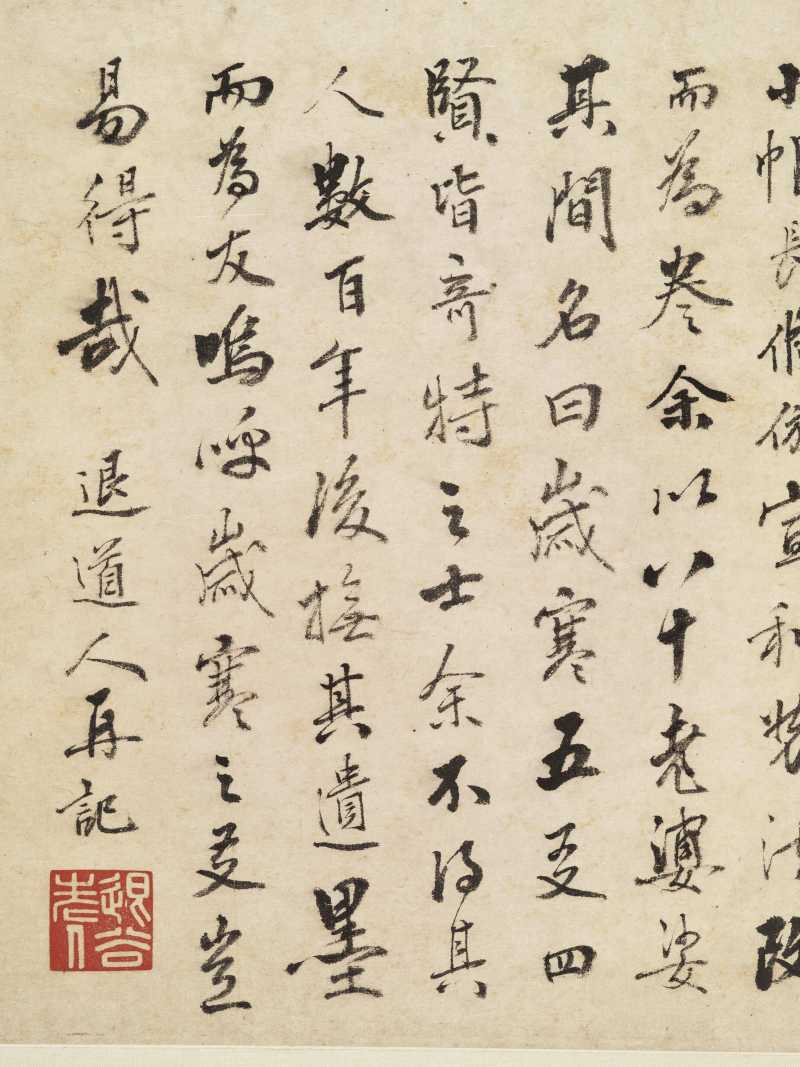 小幀長條仿宣和裝法改
而為卷余以八十老婆娑
其間名曰歲寒五友四
賢皆奇特之士余不得其
人數百年後撫其遺墨
而為友嗚呼歲寒之友豈
易得哉 退道人再記
退谷老人